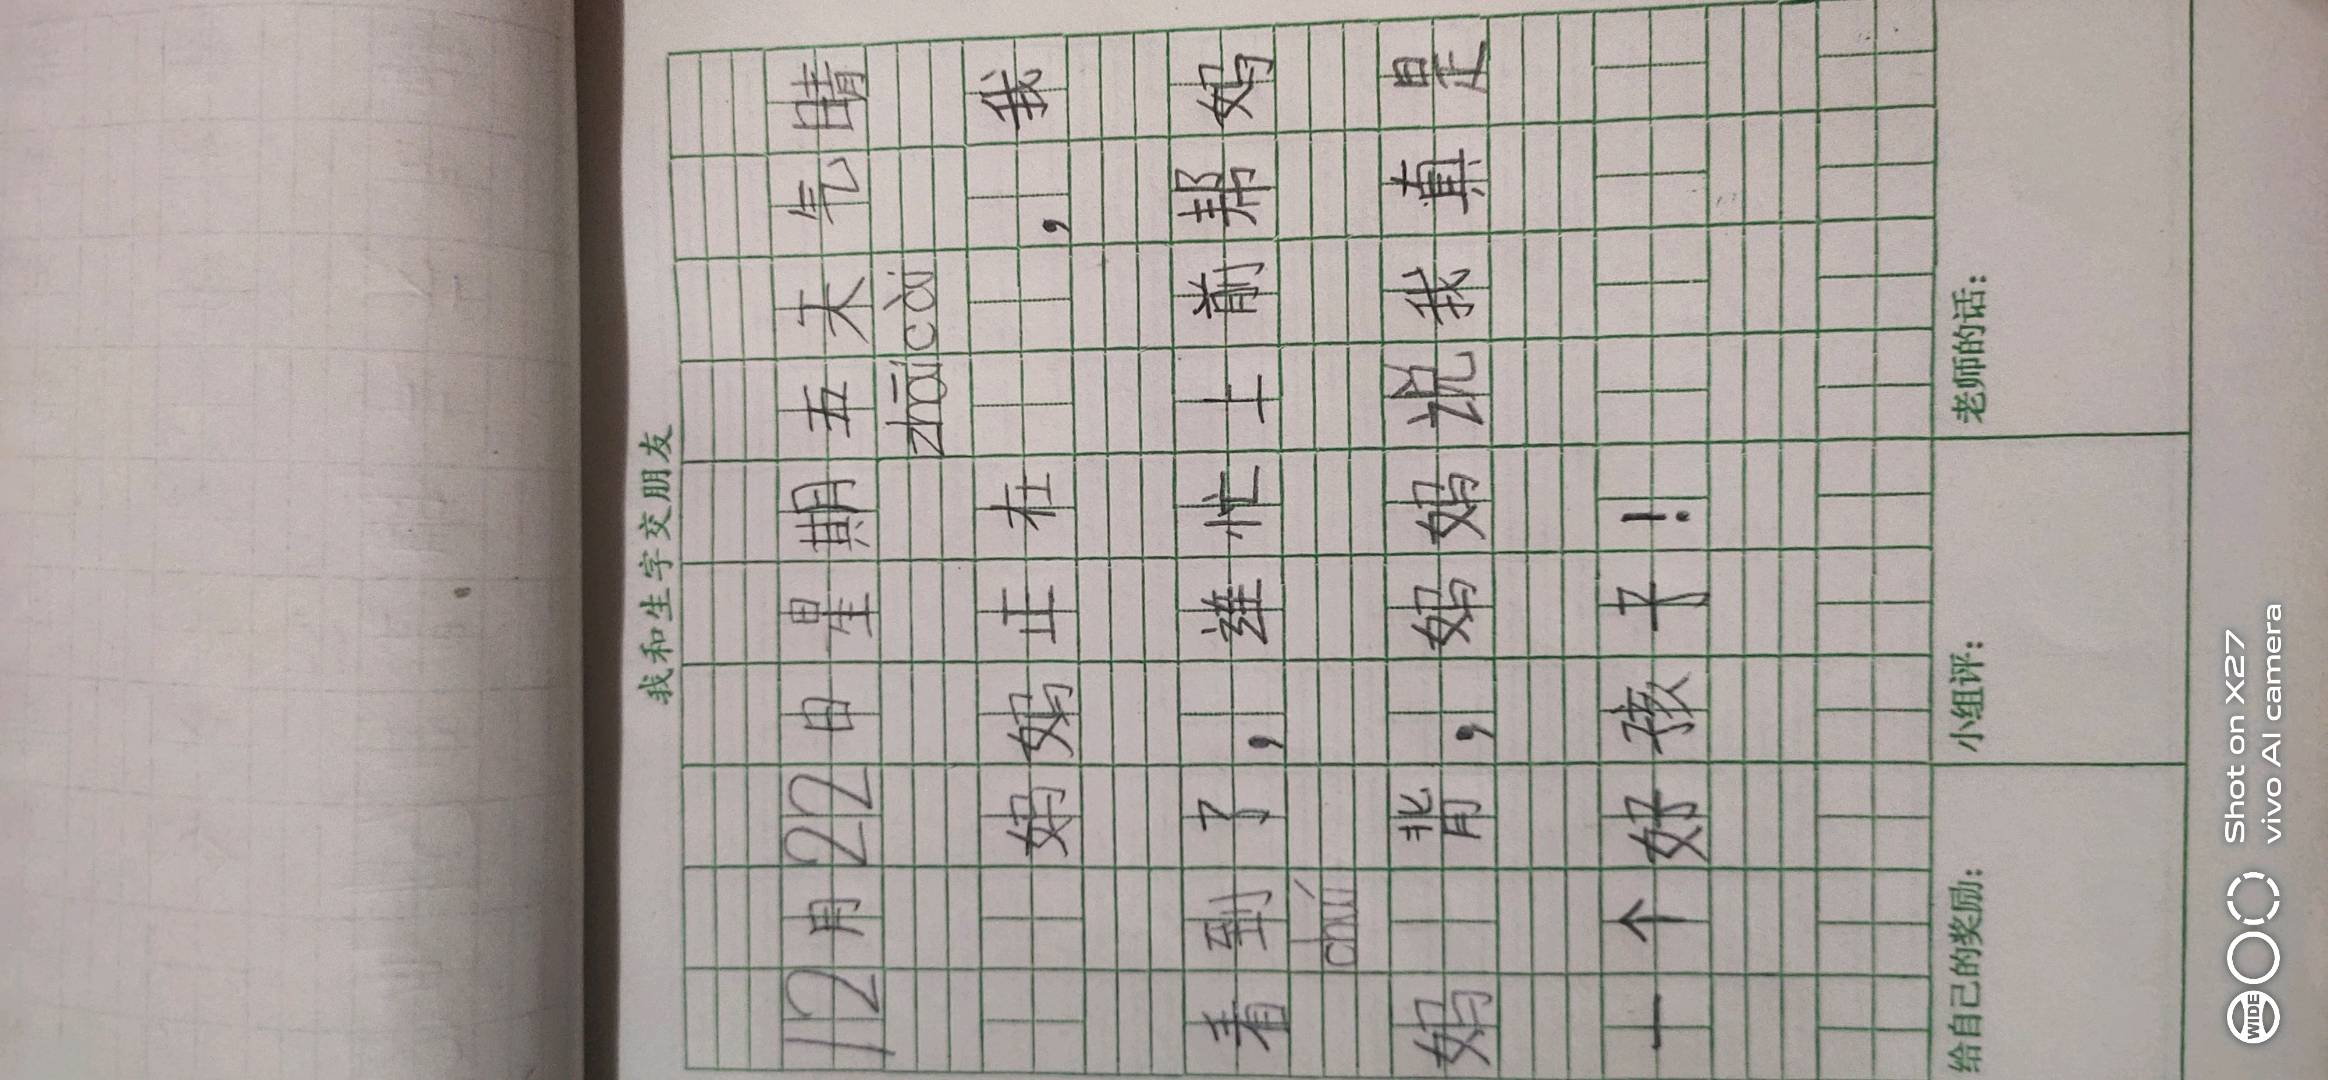 我和生字交朋友
12月22日星期五天气晴
zhāi cài
妈妈正在 ，我
看到了，连忙上前帮妈
chuí
妈 背，妈妈说我真是
一个好孩子！
给自己的奖励： 小组评： 老师的话：
WIDE
Shot on X27
vivo AI camera